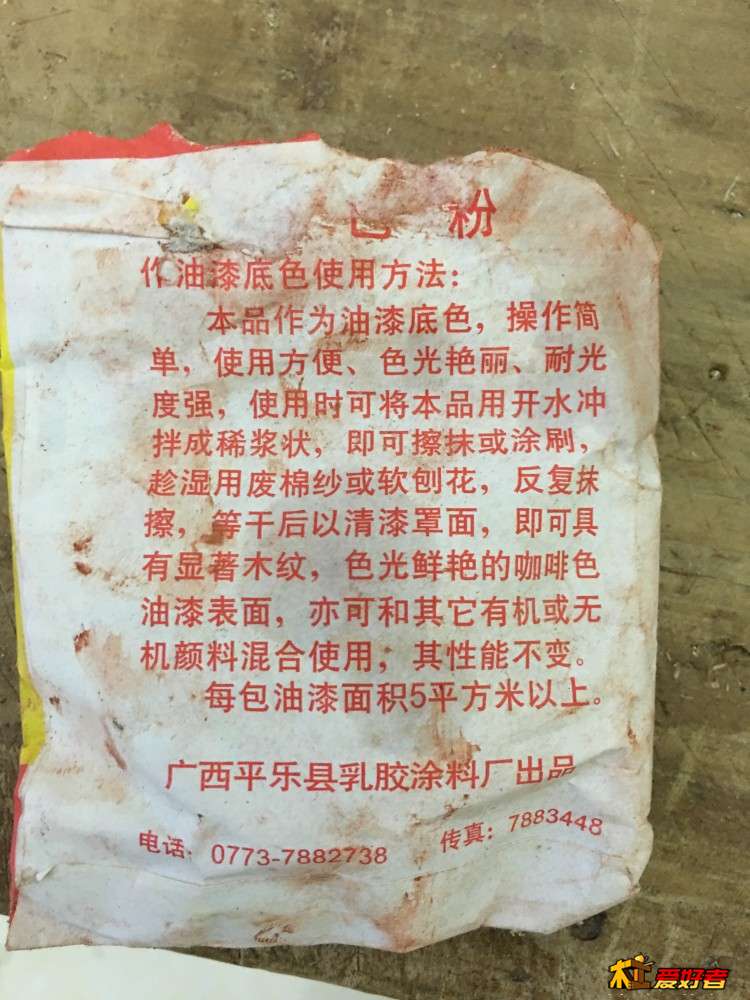 粉
作油漆底色使用方法：
本品作为油漆底色，操作简
单，使用方便、色光艳丽、耐光
度强，使用时可将本品用开水冲
拌成稀浆状，即可擦抹或涂刷，
趁湿用废棉纱或软刨花，反复抹
擦，等干后以清漆罩面，即可具
有显著木纹，色光鲜艳的咖啡色
油漆表面，亦可和其它有机或无
机颜料混合使用；其性能不变。
每包油漆面积5平方米以上。
广西平乐县乳胶涂料厂出品
电话：0773-7882738 传真：7883448
爱好者